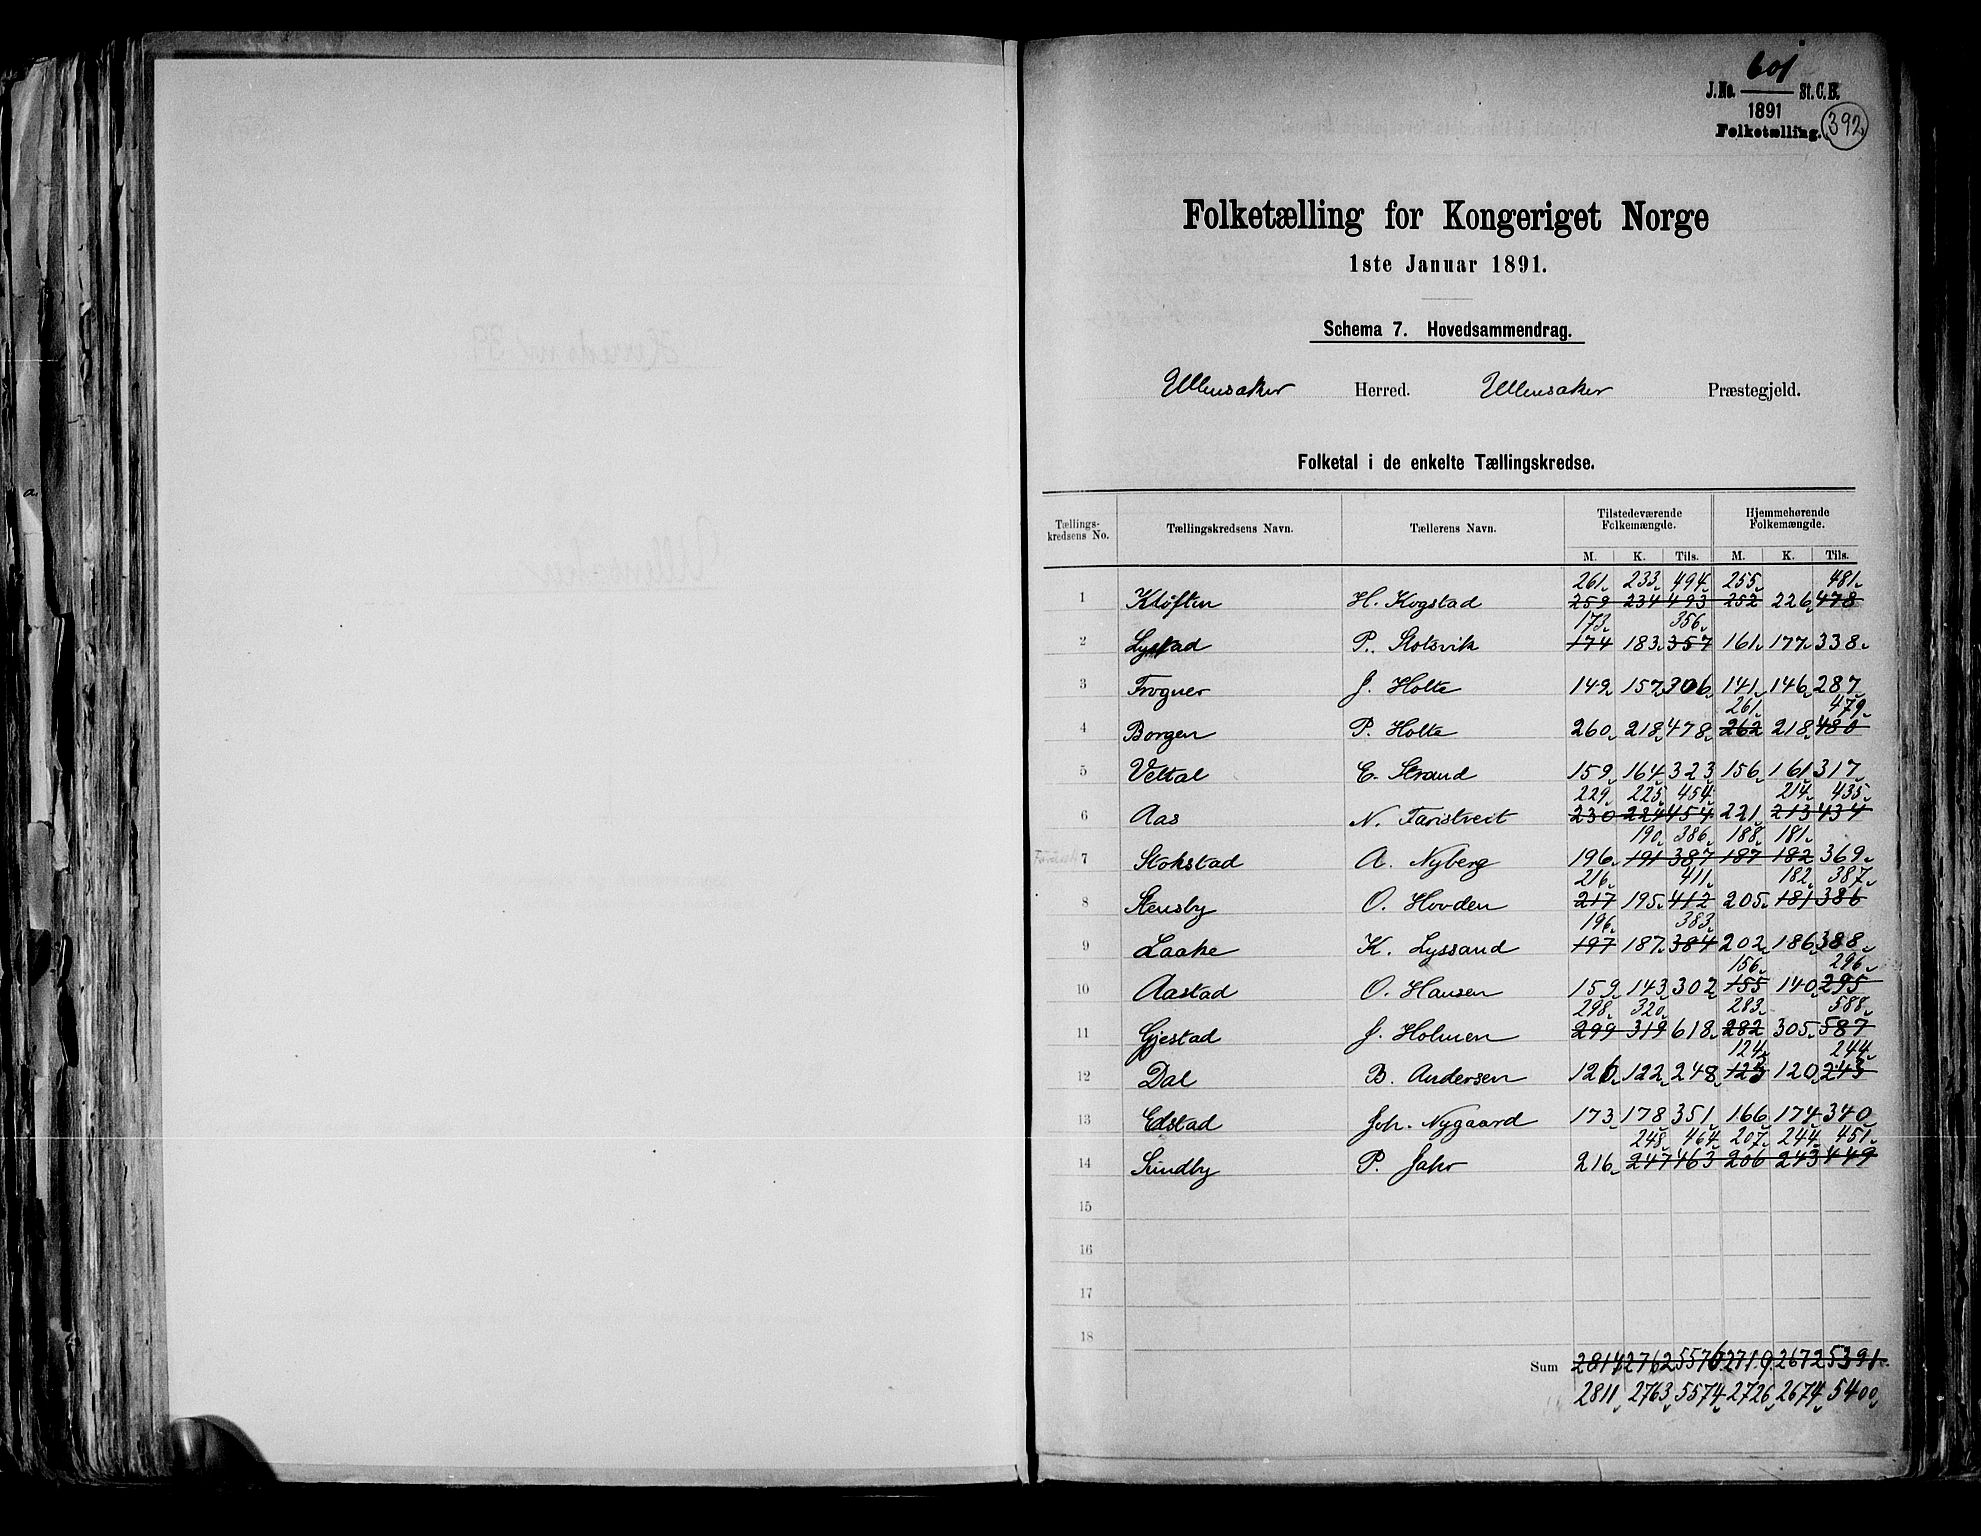 601
J.No. St. C. B.
1891
Folketælling.
392
Folketælling for Kongeriget Norge
1ste Januar 1891.
Schema 7. Hovedsammendrag.
Ullensaker Herred. Ullensaker Præstegjeld.
Folketal i de enkelte Tællingskredse.
Tællings-kredsens No. Tællingskredsens Navn. Tællerens Navn. Tilstedeværende Folkemængde. Hjemmehørende Folkemængde.
M. K. Tils. M. K. Tils.
261 233 494 255 481
1 Kløften H. Kogstad 259 234 493 252 226 478
173 356
2 Lystad P. Stolsvik 174 183 357 161 177 338
3 Frogner J. Holte 149 157 306 141 146 287
261 479
4 Borgen P. Holte 260 218 478 262 218 480
5 Veltal E. Strand 159 164 323 156 161 317
229 225 454 214 435
6 Aas N. Taristveit 230 224 454 221 213 434
190 386 188 181
7 Stokstad A. Nyberg 196 191 387 187 182 369
216 411 182 387
8 Stensby O. Hovden 217 195 412 205 181 386
196 383
9 Laake K. Lyssand 197 187 384 202 186 388
156 296
10 Aastad O. Hansen 159 143 302 155 140 295
298 320 283 588
11 Gjestad J. Holmen 299 319 618 282 305 587
124 244
12 Dal B. Andersen 126 122 248 123 120 243
13 Edstad Joh. Nygaard 173 178 351 166 174 340
248 464 207 244 451
14 Sundby P. Jahr 216 247 463 206 243 449
15
16
17
18
Sum 2814 2762 5576 2719 2672 5391
2811 2763 5574 2726 2674 5400